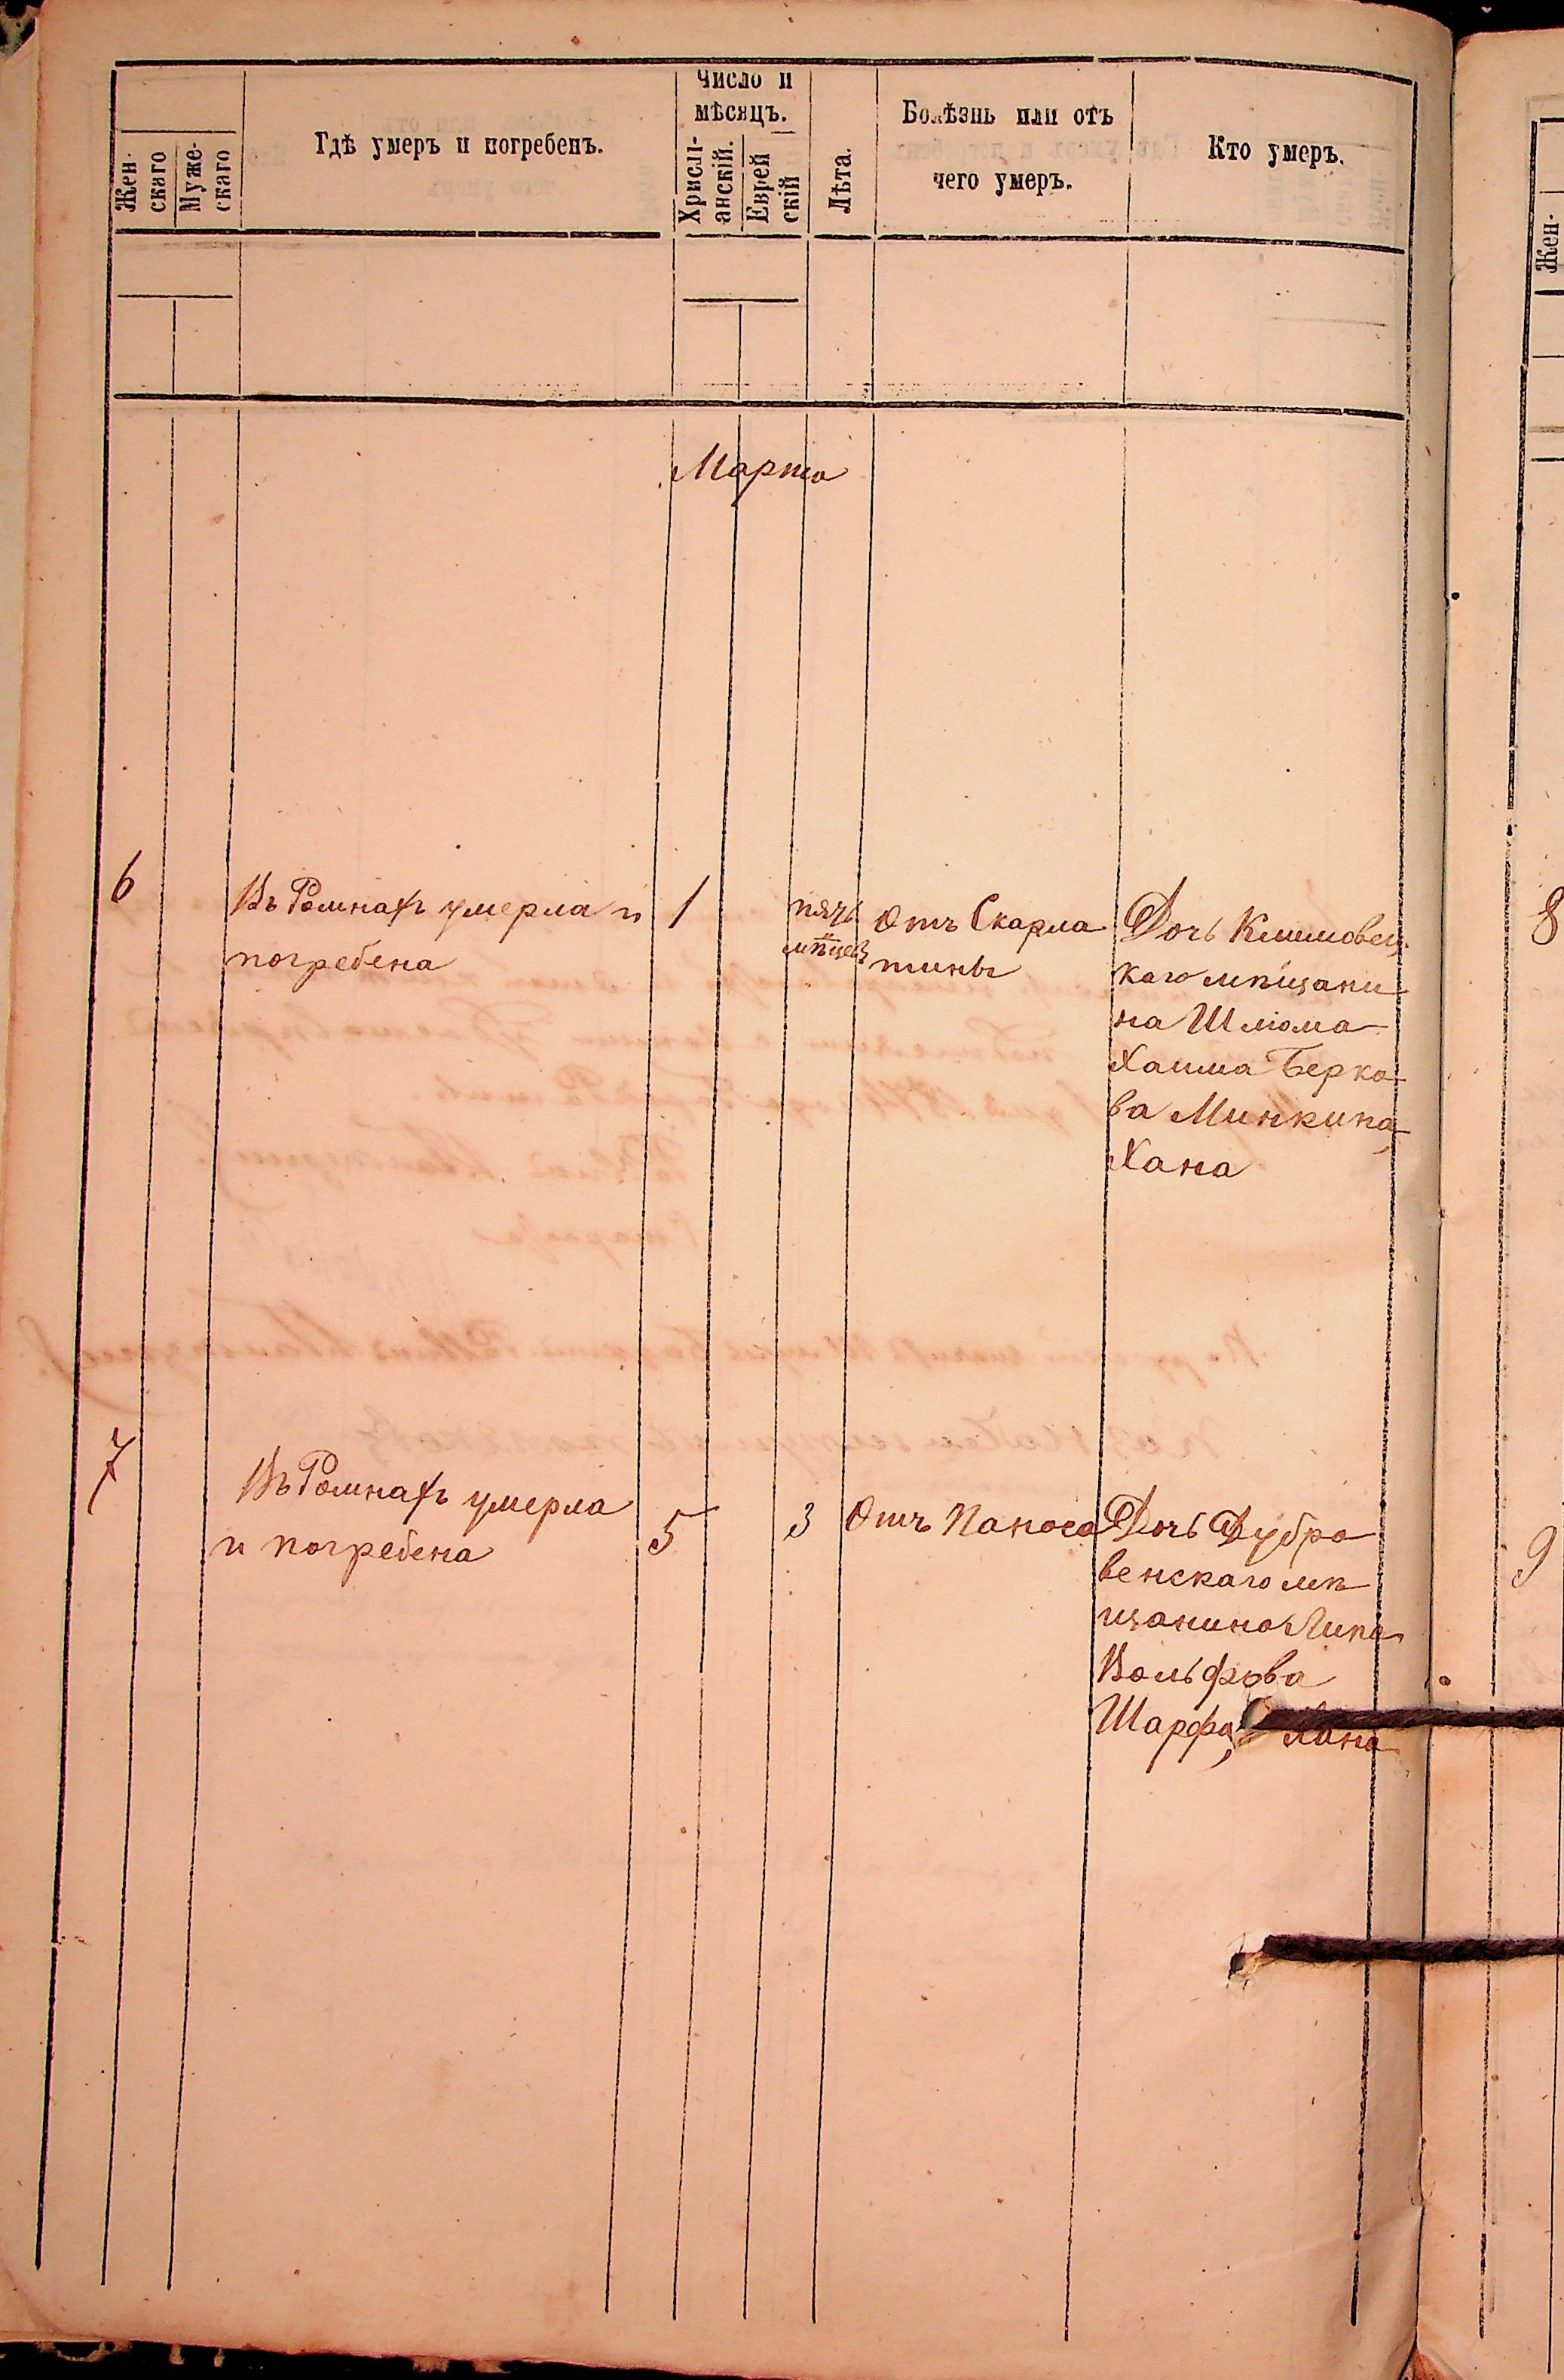 Жен-
скаго
Муже-
скаго
Гдѣ умеръ и погребенъ.
Число и
мѣсяцъ.
Христі-
анскій.
Еврей
скій
Лѣта.
Болѣзнь или отъ
чего умеръ.
Кто умеръ.
Жен-
Марта
6
Въ Ромнахъ умерла и
погребена
1
пять
мѣцев
Отъ Скарла
тины
Дочь Климовец
каго мѣщани
на Шлюма
Хаима Берко
ва Минкина,
Хана
8
7
Въ Ромнахъ умерла
и погребена
5
3
Отъ Паноса
Дочь Дубро
венскаго мѣ
щанина Липа
Вольфова
Шарфа, Хана
9